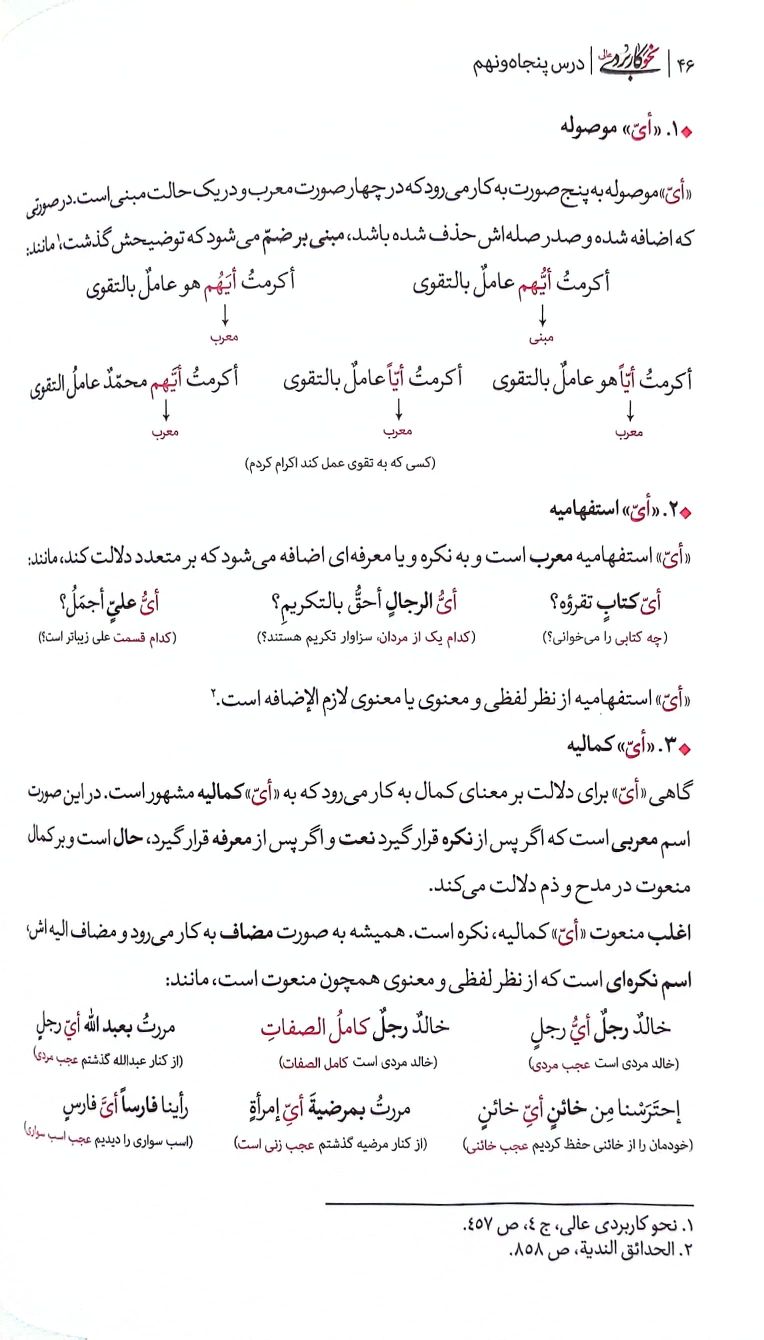 ۴۶ | نحو کاربردی عالی | درس پنجاه‌ونهم
۱. «أیّ» موصوله
«أیّ» موصوله به پنج صورت به کار می‌رود که در چهار صورت معرب و در یک حالت مبنی است. در صورتی
که اضافه شده و صدر صله‌اش حذف شده باشد، مبنی بر ضمّ می‌شود که توضیحش گذشت،۱ مانند:
أکرمتُ أیُّهم عاملٌ بالتقوی    أکرمتُ أیَهُم هو عاملٌ بالتقوی
↓    ↓
مبنی    معرب
أکرمتُ أیّاً هو عاملٌ بالتقوی    أکرمتُ أیّاً عاملٌ بالتقوی    أکرمتُ أیَّهم محمّدٌ عاملُ التقوی
↓    ↓    ↓
معرب    معرب    معرب
(کسی که به تقوی عمل کند اکرام کردم)
۲. «أیّ» استفهامیه
«أیّ» استفهامیه معرب است و به نکره و یا معرفه‌ای اضافه می‌شود که بر متعدد دلالت کند، مانند:
أیّ کتابٍ تقرؤه؟    أیُّ الرجالِ أحقُّ بالتکریمِ؟    أیُّ علیٍّ أجمَلُ؟
(چه کتابی را می‌خوانی؟)    (کدام یک از مردان، سزاوار تکریم هستند؟)    (کدام قسمت علی زیباتر است؟)
«أیّ» استفهامیه از نظر لفظی و معنوی یا معنوی لازم الإضافه است.۲
۳. «أیّ» کمالیه
گاهی «أیّ» برای دلالت بر معنای کمال به کار می‌رود که به «أیّ» کمالیه مشهور است. در این صورت
اسم معربی است که اگر پس از نکره قرار گیرد نعت و اگر پس از معرفه قرار گیرد، حال است و بر کمال
منعوت در مدح و ذم دلالت می‌کند.
اغلب منعوت «أیّ» کمالیه، نکره است. همیشه به صورت مضاف به کار می‌رود و مضاف الیه اش،
اسم نکره‌ای است که از نظر لفظی و معنوی همچون منعوت است، مانند:
خالدٌ رجلٌ أیُّ رجلٍ    خالدٌ رجلٌ کاملُ الصفاتِ    مررتُ بعبد الله أیّ رجلٍ
(خالد مردی است عجب مردی)    (خالد مردی است کامل الصفات)    (از کنار عبدالله گذشتم عجب مردی)
إحتَرَسْنا مِن خائنٍ أیِّ خائنٍ    مررتُ بمرضیةَ أیِّ إمرأةٍ    رأینا فارساً أیَّ فارسٍ
(خودمان را از خائنی حفظ کردیم عجب خائنی)    (از کنار مرضیه گذشتم عجب زنی است)    (اسب سواری را دیدیم عجب اسب سواری)
۱. نحو کاربردی عالی، ج ٤، ص ٤٥٧.
۲. الحدائق الندیة، ص ٨٥٨.